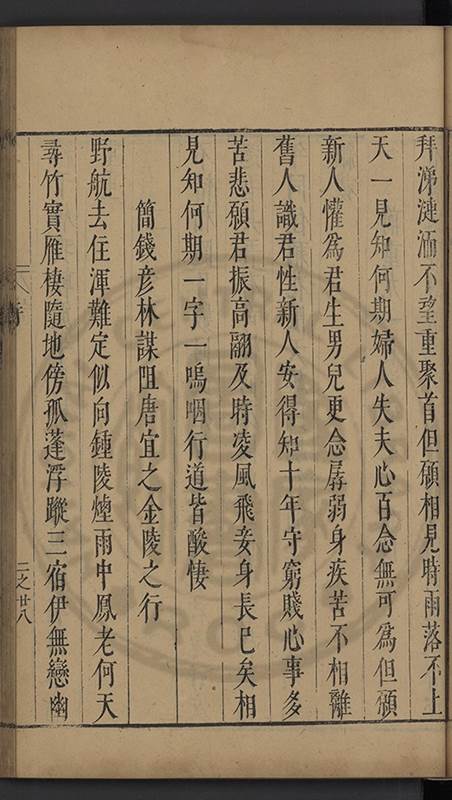 拜涕漣洏不望重聚首但願相見時雨落不上
天一見知何期婦人失夫心百念無可為但願
新人懽為君生男兒更念孱弱身疾苦不相離
舊人識君性新人安得知十年守窮賤心事多
苦悲願君振高翮及時凌風飛妾身長已矣相
見知何期一字一嗚咽行道皆酸悽
簡錢彦林謀阻唐宜之金陵之行
野航去住渾難定似向鍾陵煙雨中鳳老何天
尋竹實雁棲隨地傍孤蓬浮蹤三宿伊無戀幽
二之廿八